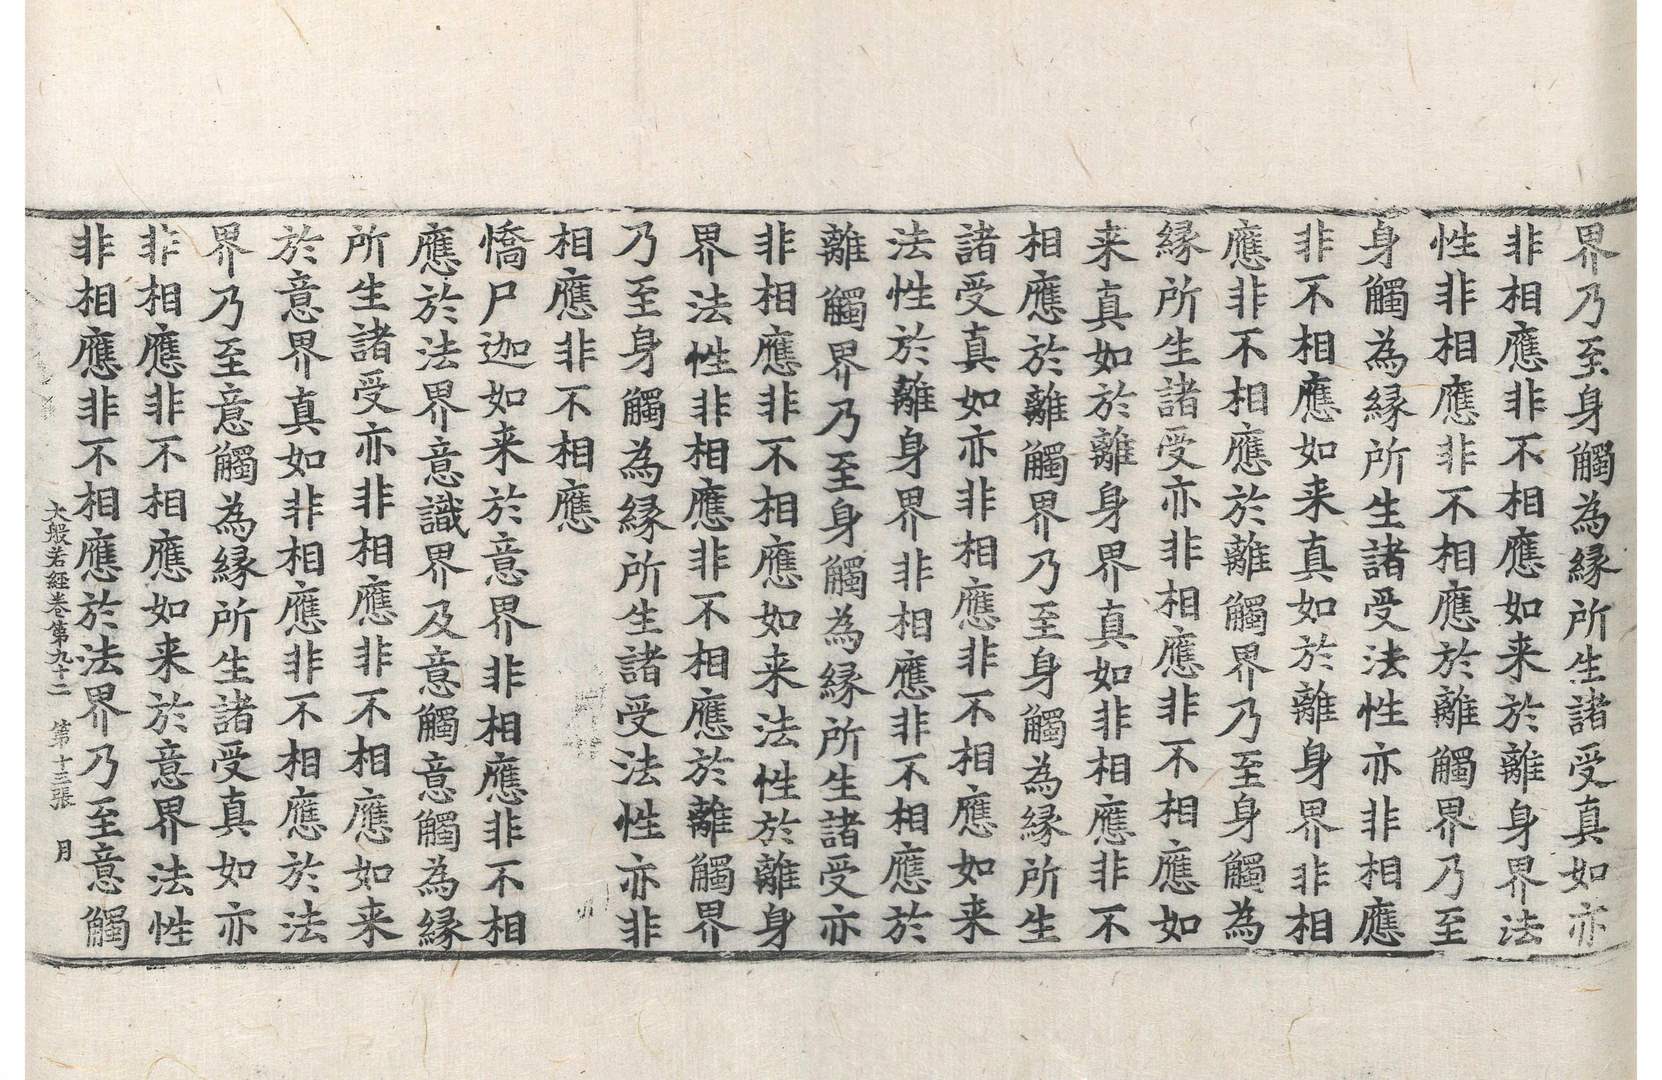 界乃至身觸為緣所生諸受真如亦
非相應非不相應如来於離身界法
性非相應非不相應於離觸界乃至
身觸為緣所生諸受法性亦非相應
非不相應如来真如於離身界非相
應非不相應於離觸界乃至身觸為
緣所生諸受亦非相應非不相應如
来真如於離身界真如非相應非不
相應於離觸界乃至身觸為緣所生
諸受真如亦非相應非不相應如来
法性於離身界非相應非不相應於
離觸界乃至身觸為緣所生諸受亦
非相應非不相應如来法性於離身
界法性非相應非不相應於離觸界
乃至身觸為緣所生諸受法性亦非
相應非不相應
憍尸迦如来於意界非相應非不相
應於法界意識界及意觸意觸為緣
所生諸受亦非相應非不相應如来
於意界真如非相應非不相應於法
界乃至意觸為緣所生諸受真如亦
非相應非不相應如来於意界法性
非相應非不相應於法界乃至意觸
大般若經卷第九十二　第十三張　月